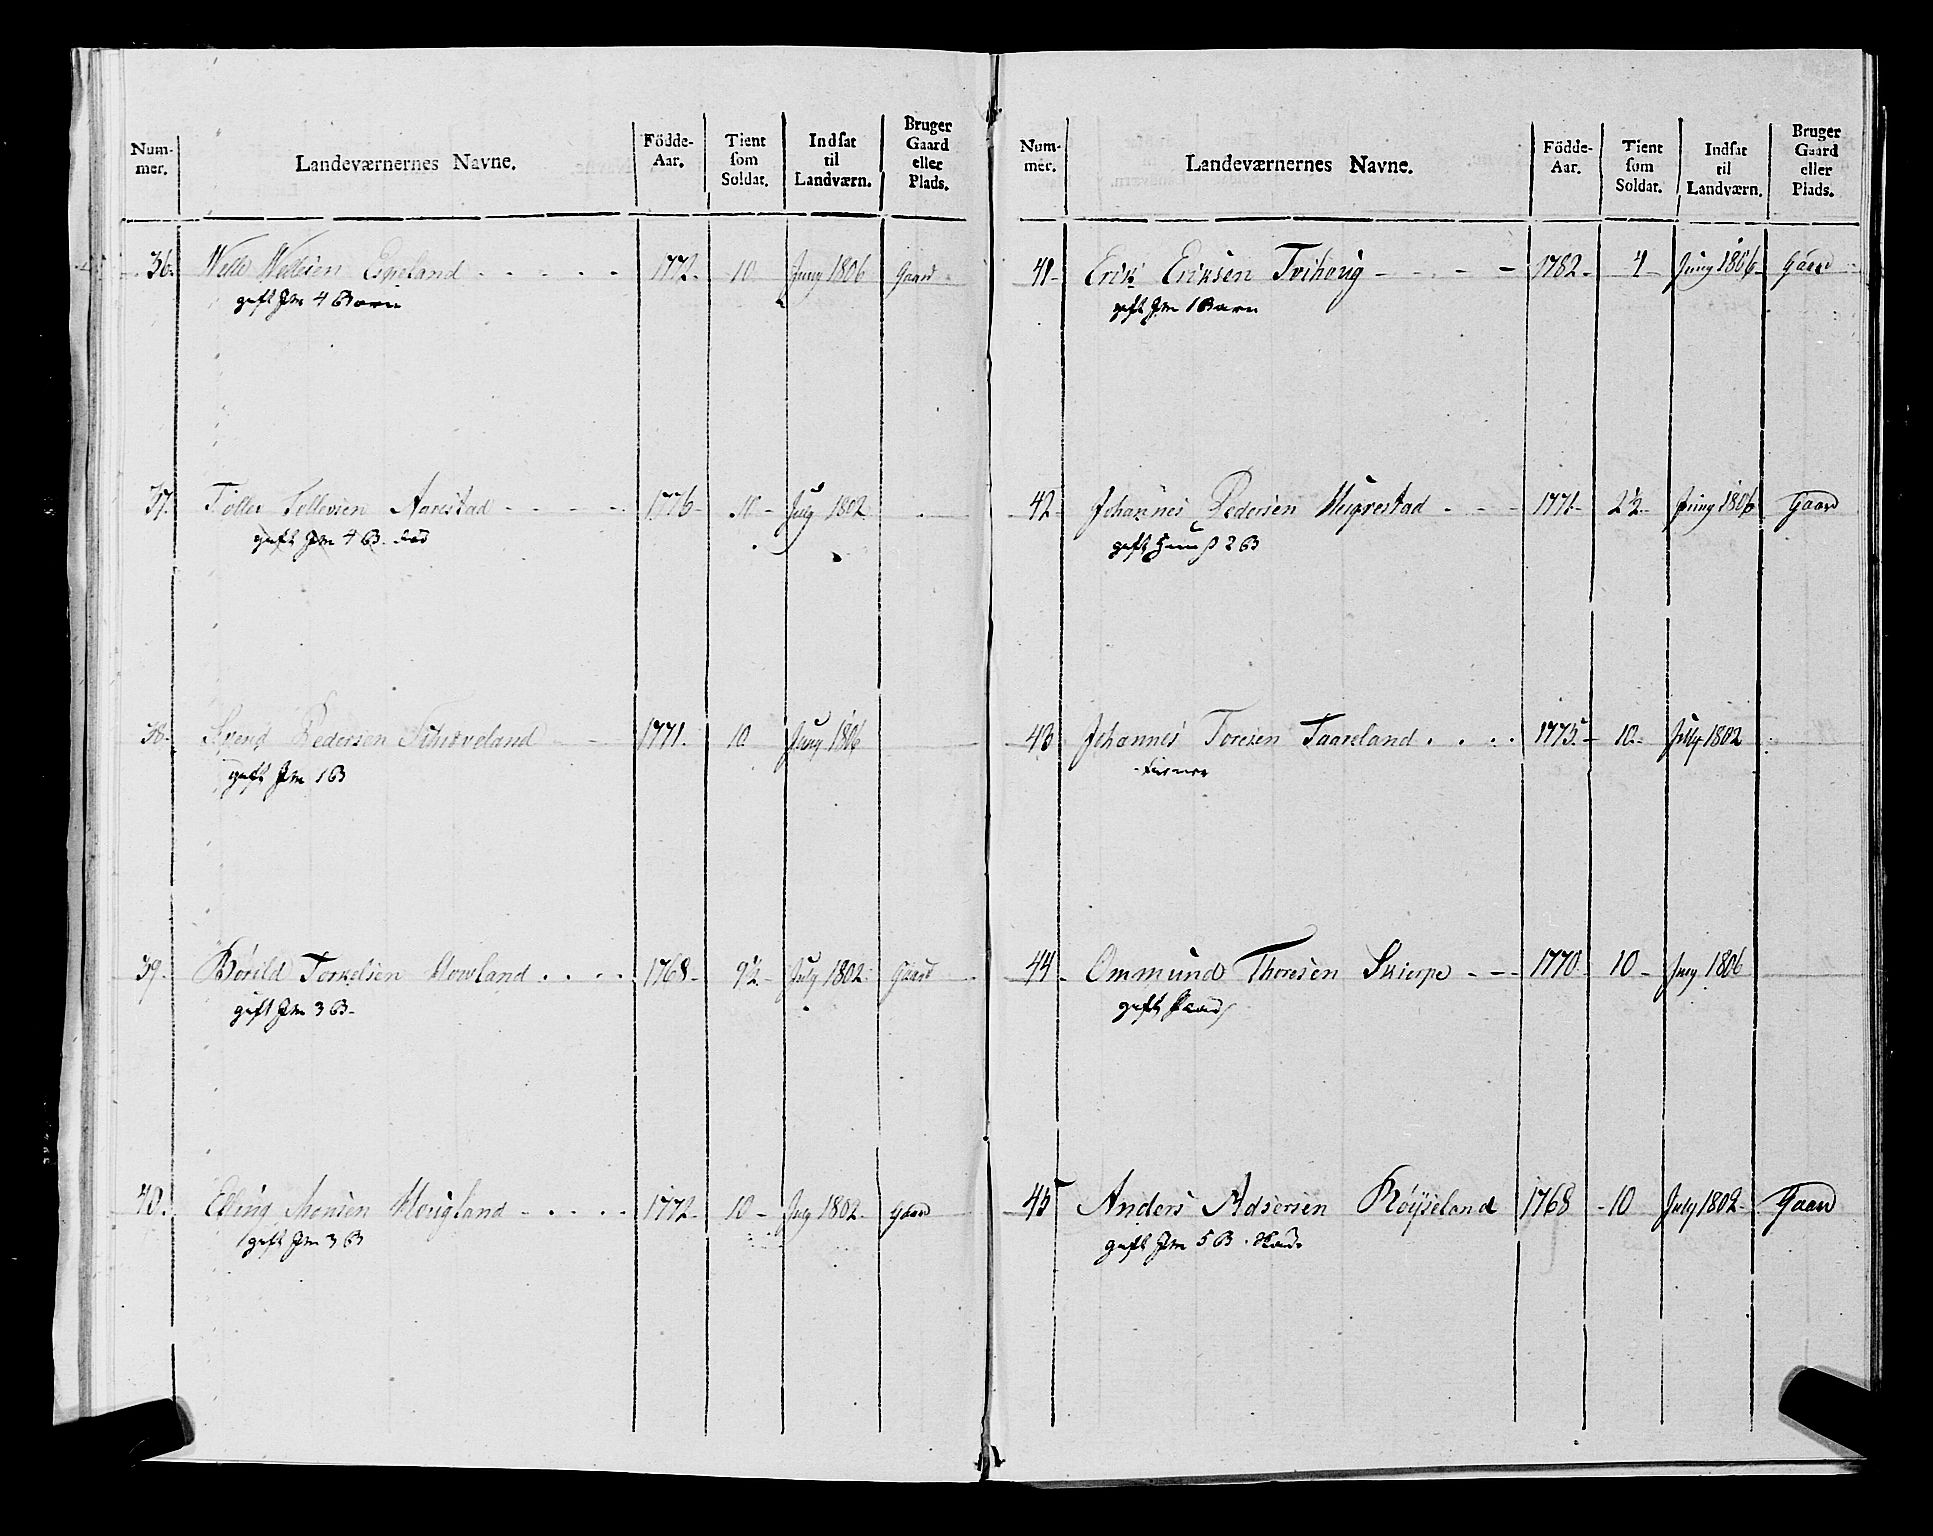 Num-mer. Landeværnernes Navne. Födde-Aar. Tient som Soldat. Indsat til Landværn. Bruger Gaard eller Plads.
36. Welle Wellesen Egeland 1772. 10 Juny 1806 Gaard
gift Jm 4 Børn
37. Tollev Tollevsen Aarestad 1776 10 July 1802.
gift Jm 4 B.
38. Svend Pedersen Schaveland 1771. 10 Juny 1806
gift Jm 1 B
39. Børild Torkelsen Howland 1768 9½ July 1802. Gaard
gift Jm 3 B.
40. Elling Monsen Hougland 1772. 10 July 1802. Gaard
gift Jm 3 B
Num-mer. Landeværnernes Navne. Födde-Aar. Tient som Soldat. Indsat til Landværn. Bruger Gaard eller Plads.
41 Erik Eriksen Tvihoug 1782 4 Juny 1806 Gaard
gift Jm 1 Barn
42 Johannes Pedersen Hegrestad 1771 2½ Juny 1806 Gaard
gift 2 B
43 Johannes Toresen Taareland 1775 10 July 1802
44 Ommund Thoresen Skierpe 1770 10 Juny 1806
gift
45 Anders Adsersen Røyseland 1768 10 July 1802 Gaard
gift Jm 5 B.